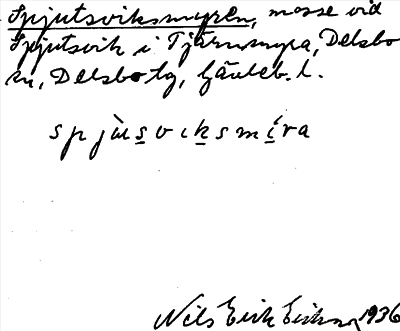 Spjutsviksmyren, mosse vid
Spjutsvik i Tjärnmyra, Delsbo
sn, Delsbo tg, Gävleb. l.
spjùsvıksmíra
Nils Erik Eriksson 1936